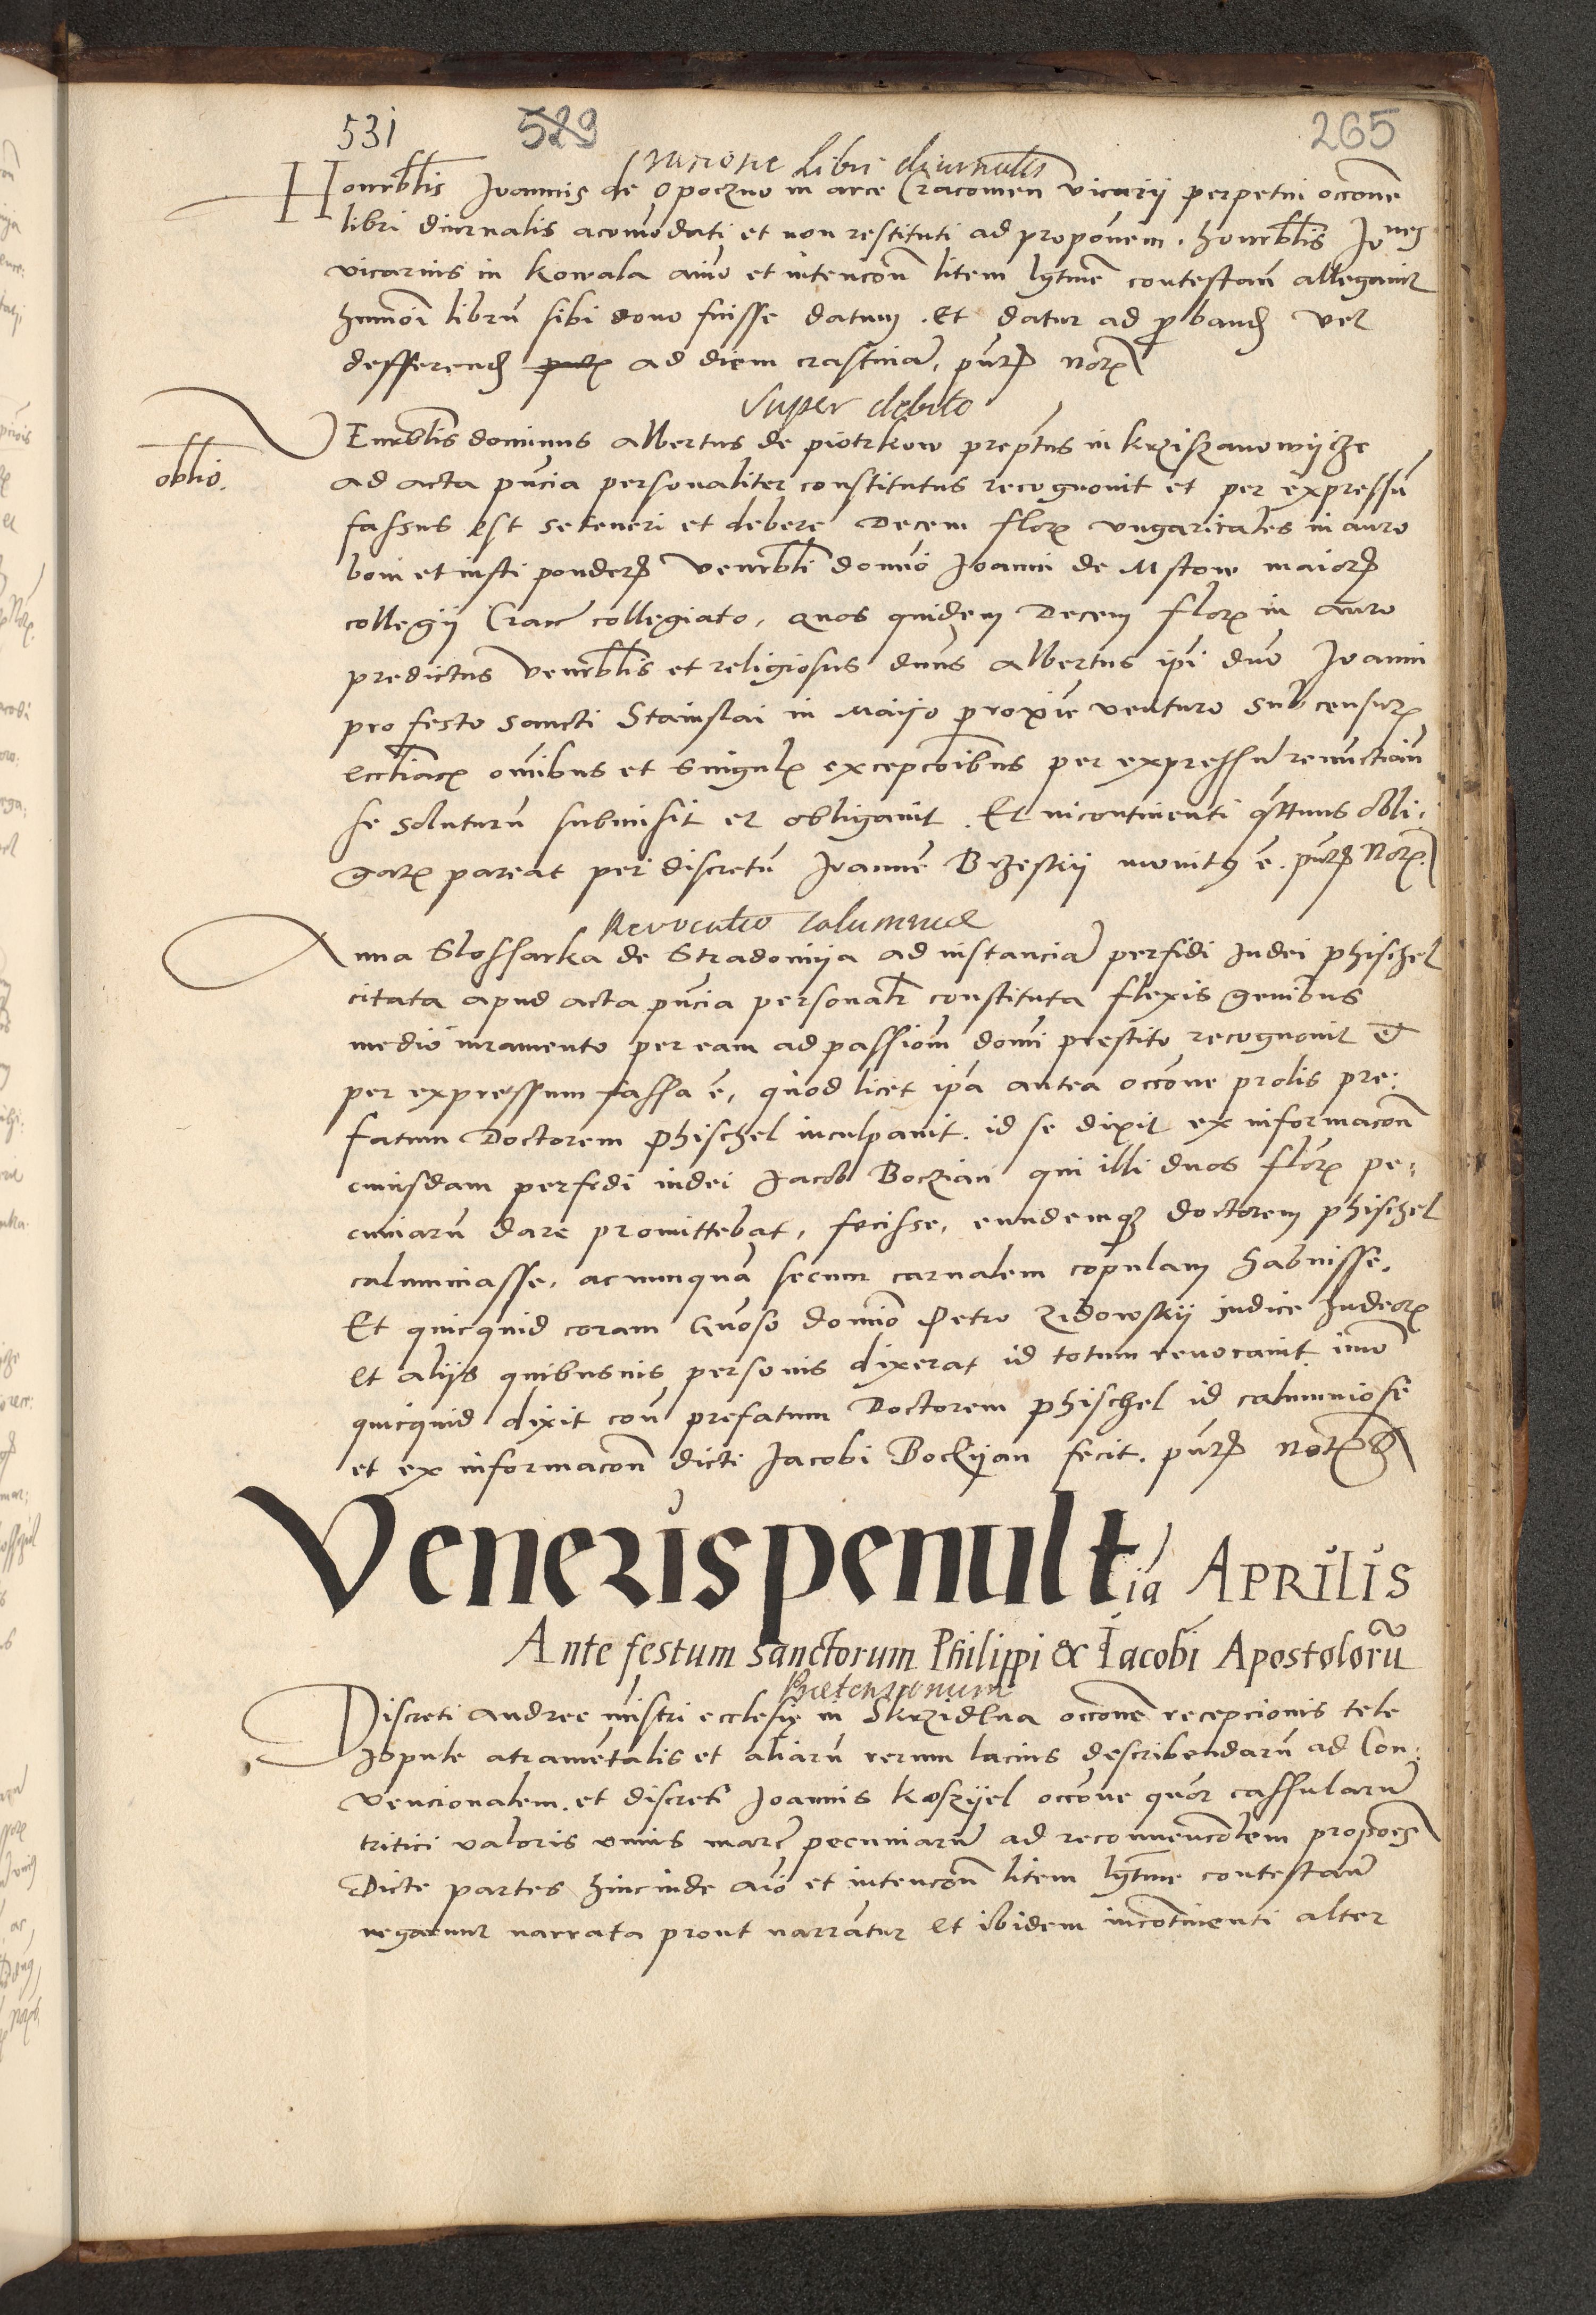 531 529 265
ratione Libri diurnalis
Honorblis Joannis de Opoczno in arce Cracovien vicarij perpetui occone
libri diurnalis acomodati et non restituti ad proponem. honorblis Joannes
vicarius in Kowala aio et intencon litem lgtme contestan allegavit
hmoi libru sibi dono fuisse datum. Et datur ad proband vel
defferend ad diem crastina, pntt Notr
Super debito
oblio.
VEnerblis dominus Albertus de piotrkow preptus in krziszanowijcze
ad acta pncia personaliter constitutus recognovit et per expressu
fassus est se teneri et debere Decem flor ungaricales in auro
boni et iusti ponder Venerbli domino Joanni de Mstow maior
collegij Crac collegiato, quos quidem Decem flor in auro
predictus Venerblis et religiosus dnus Albertus ipi dno Joanni
pro festo sancti Stanislai in Maijo proxie venturo sub censur
eccliac omibus et singul excepcoibus per expressu renuctian
se soluturu submisit et obligavit. Et incontinenti qttnus obli-
gac pareat per discretu Joanne Brzeskij monitus e. pntt Notr.
Revocatio Calumniae
Anna Slossarka de Stradomija ad instancia perfidi Judei phischel
citata apud acta pncia personalr constituta flexis genibus
medio iuramento per eam ad passiom domi prestito recognovit et
per expressum fassa e, quod licet ipa antea occone prolis pre-
fatum Doctorem phischel inculpavit. id se dixit ex informacon
cuiusdam perfidi iudei Jacob Boczian qui illi duos flor pe-
cuniaru dare promittebat, fecisse, eundemq doctorem phischel
calumniasse, ac nunqua secum carnalem copulam habuisse.
Et quicquid coram Gnoso domino Petro Zidowskij iudice Judeor
et alijs quibusuis personis dixerat id totum revocavit imo
quicquid dixit con prefatum Doctorem phischel id calumniose
et ex informacon dicti Jacobi Boczijan fecit. pntt Notr
Veneris penultia APRILIS
Ante festum sanctorum Philippi & Iacobi Apostoloru
Praetensionum
Discreti Andree mistri ecclesie in Skrzidlna occone recepcionis tele
scopule atramentalis et aliaru rerum lacius describendaru ad Con-
vencionalem. et discreti Joannis Koszijel occone quor cassularu
tritici valoris unius marc pecuniaru ad reconvencolem propoes
Dicte partes hincinde aio et intencon litem lgtme contestan
negarunt narrata prout narrantur et ibidem incontinenti alter